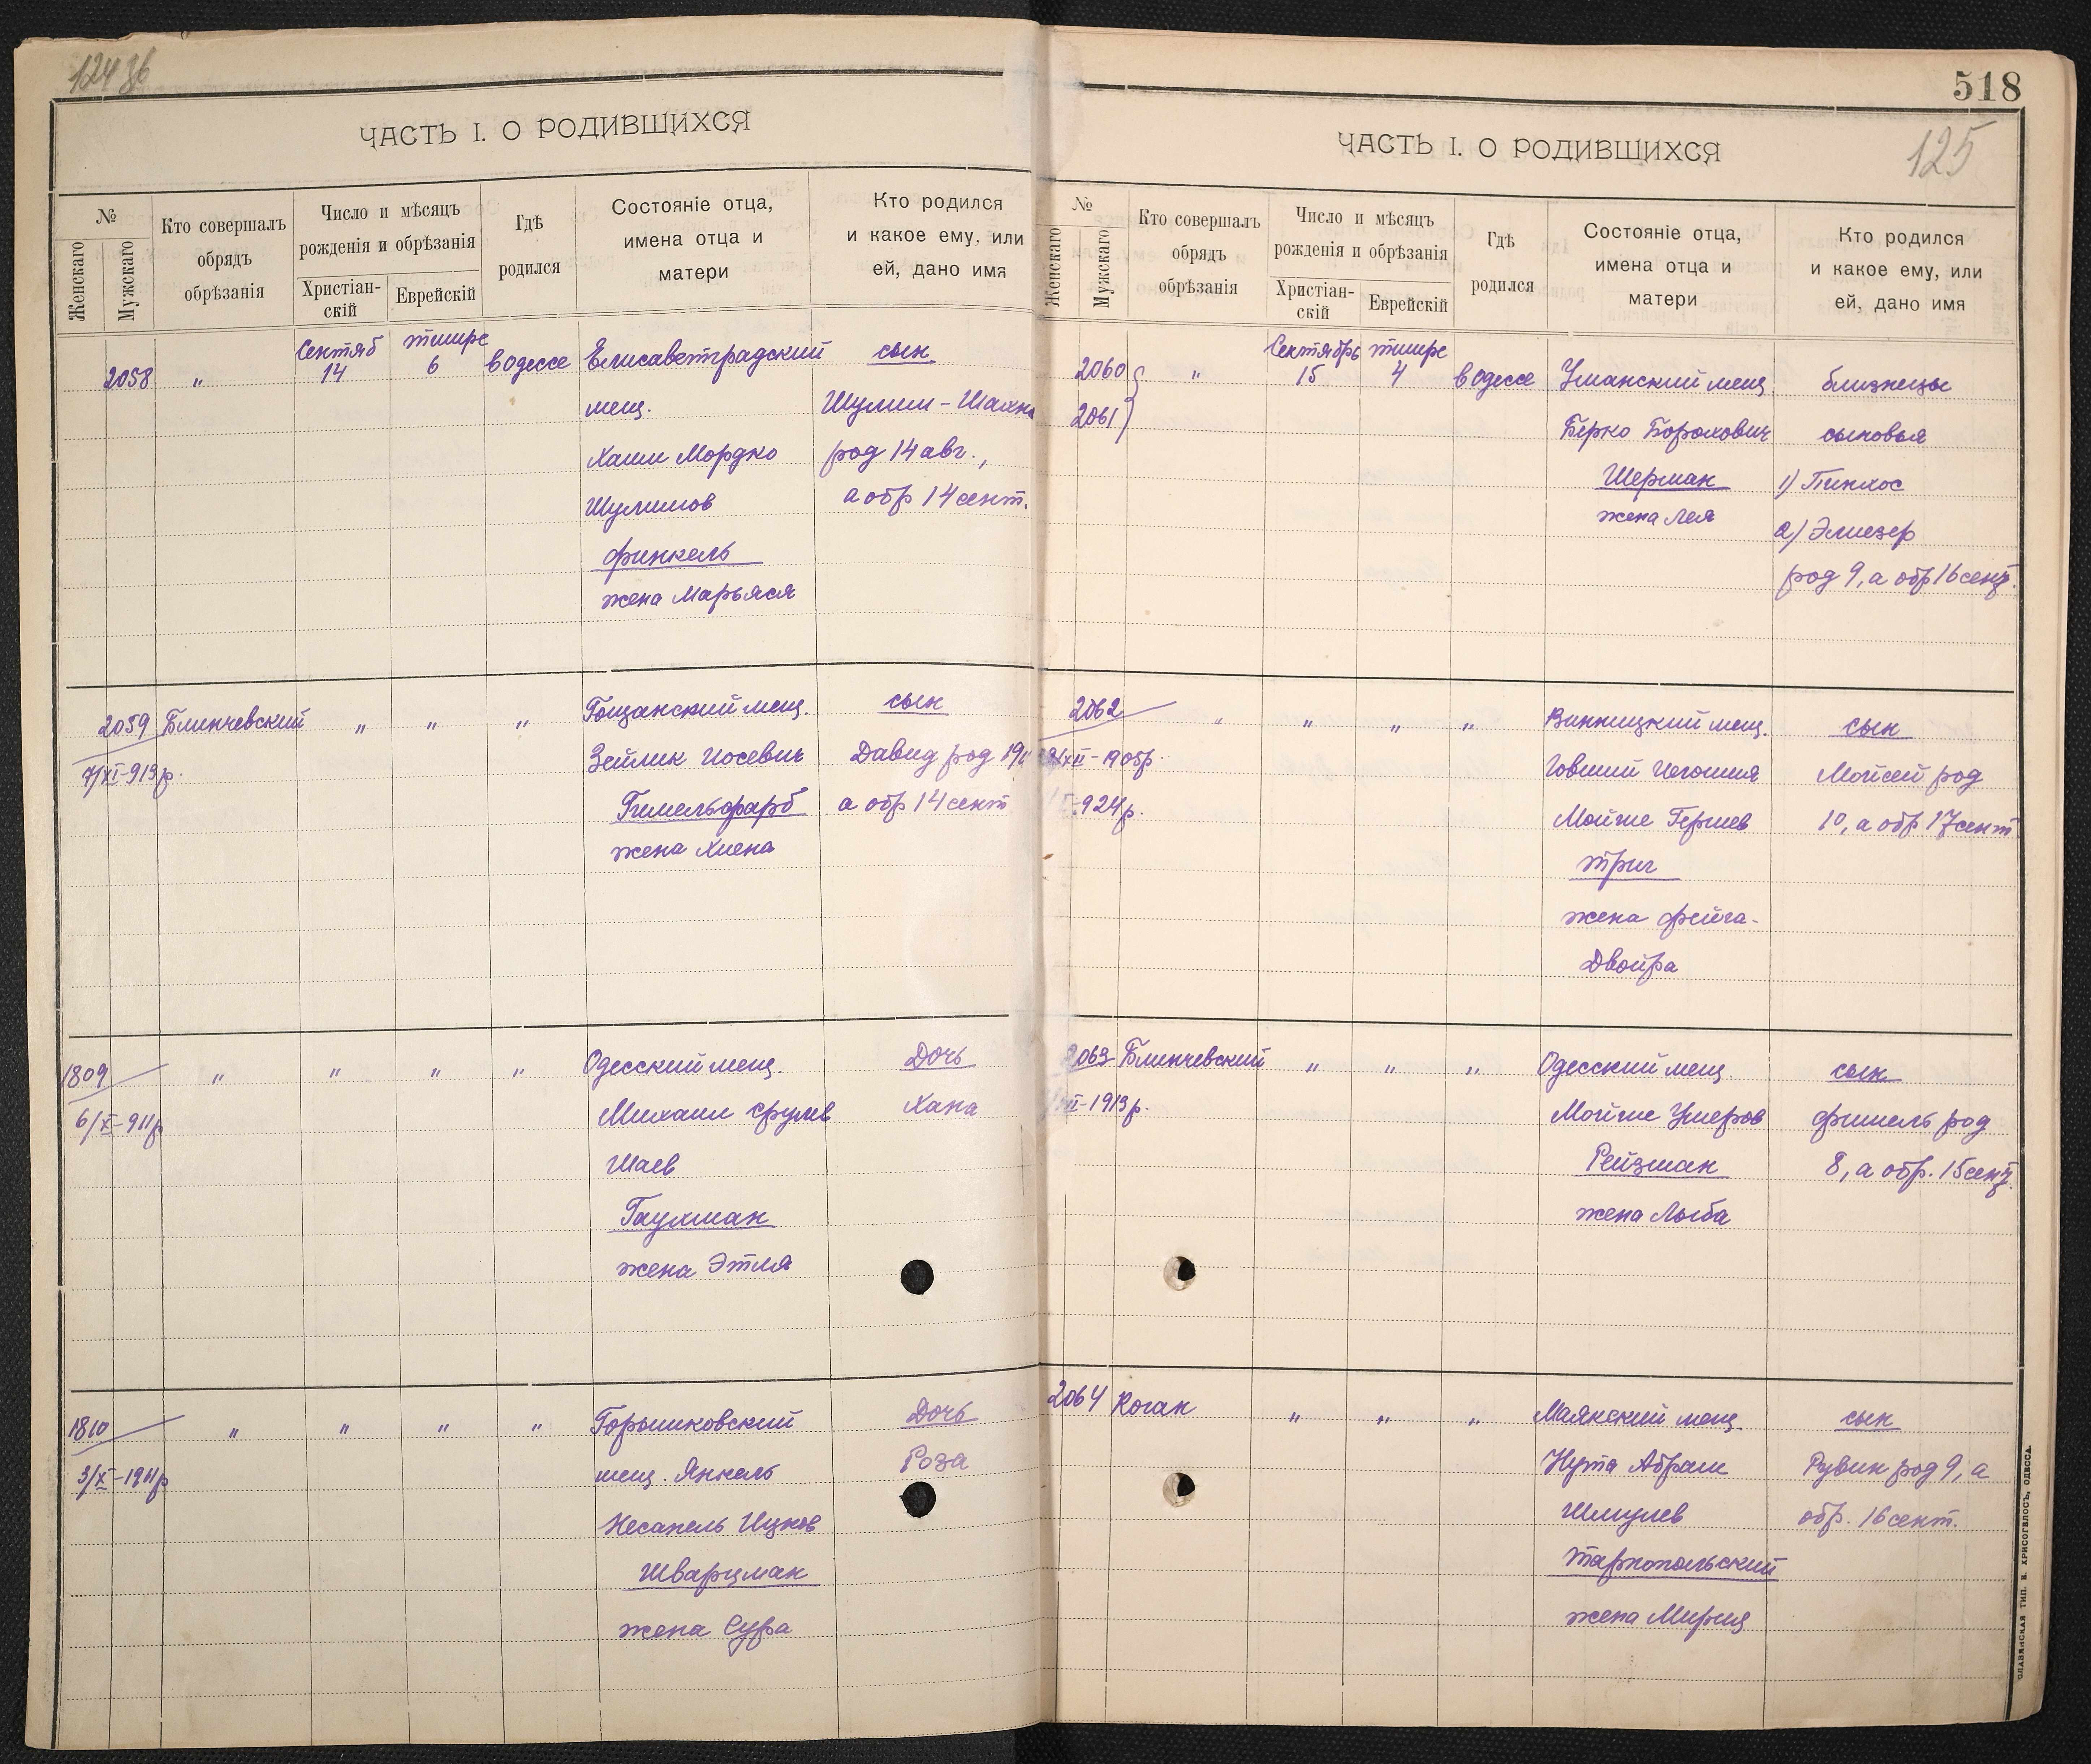 124 об
ЧАСТЬ I. О РОДИВШИХСЯ
№
Женскаго
Мужскаго
Кто совершалъ
обрядъ
обрѣзанія
Число и мѣсяцъ
рожденія и обрѣзанія
Христіан-
скій
Еврейскій
Гдѣ
родился
Состояніе отца,
имена отца и
матери
Кто родился
и какое ему, или
ей, дано имя
2058 " Сентяб 14 тишре 6 в Одессе Елисаветградский сын
мещ. Шулим-Шахна
Хаим Мордко род 14 авг.,
Шулимов а обр 14 сент.
Финкель
жена Марьяся
2059 Блинчевский " " " Гощанский мещ. сын
7/XI-913р. Зейлик Иосевич Давид род
Гимельфарб а обр 14 сент
жена Хиена
1809 " " " " Одесский мещ. Дочь
6/X-911р Михаил Срулев Хана
Шаев
Гаухман
жена Этля
1810 " " " " Горышковский Дочь
3/X-1911р мещ. Янкель Роза
Несанель Ицков
Шварцман
жена Сура
518
125
ЧАСТЬ I. О РОДИВШИХСЯ
№
Женскаго
Мужскаго
Кто совершалъ
обрядъ
обрѣзанія
Число и мѣсяцъ
рожденія и обрѣзанія
Христіан-
скій
Еврейскій
Гдѣ
родился
Состояніе отца,
имена отца и
матери
Кто родился
и какое ему, или
ей, дано имя
2060 " Сентябрь 15 тишре 4 в Одессе Уманский мещ. близнецы
2061 Берко Борохович сыновья
Шерман 1) Пинхос
жена Лея 2) Элиезер
род 9, а обр 16 сент.
2062 " " " " Винницкий мещ. сын
XII-1905р. Иовший Моисей род
924р. Мойше Гершев 10, а обр 17 сент
Триг
жена Фейга-
Двойра
2063 Блинчевский " " " Одесский мещ сын
1913р. Мойше Ушеров Фишель род
Рейзман 8, а обр. 15 сент.
жена Лыба
2064 Коган " " " Маякский мещ. сын
Нута Абрам Рувин род 9, а
Шмулев обр. 16 сент.
Тарнопольский
жена Мириц
СЛАВЯНСКАЯ ТИП. Н. ХРИСОГЕЛОСЪ, ОДЕССА.